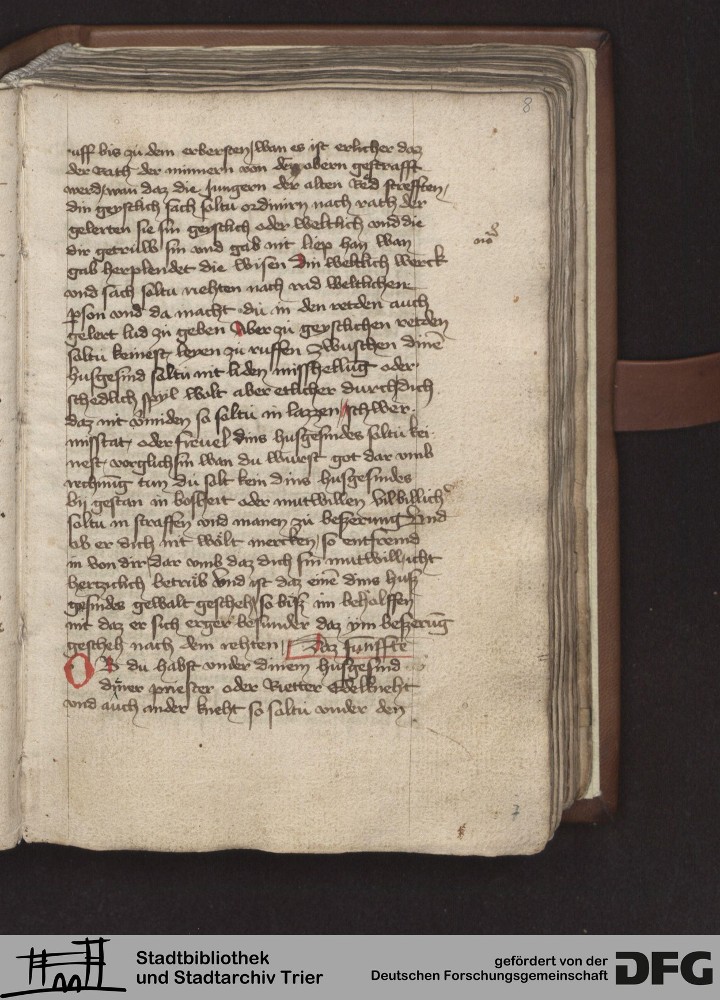 8
uff bis zu dem erbersten wan es ist erlicher daz
der Rath der minnern von den obern gestrafft
werd wan daz die Jungern der alten Red strefften
din geystlich sach soltu ordinirn nach rath der
gelerten sie sin geystlich oder weltlich vnd die
dir getriuw sin vnd gab nit liep han wan
gab herplendet die wisen Din weltlich werck
vnd sach soltu riehten nach rad weltlichenn
pson vnd da macht du in den retden auch
gelert lud zu geben Aber zu geystlichen retden
soltu keinest leyen zu ruffen Zwuschen dine
husgesind soltu nit liden misshellug oder
schedlich spyl wolt aber etlicher durch dich
daz nit vmiden so soltu in lazzen schwer
misstat oder freuel dins husgesindes soltu kei
nest vorglich sin wan du must got dar vmb
rechnug tun du solt kein dins husgesindes
bij gestan in bosheit oder mutwillen billich
soltu in straffen vnd manen zu beszerung Vnd
ob er dich nit wolt mercken so entfremd
in von dir dar vmb daz dich sin mutwill icht
hertzclich betrub Vnd ist daz eine dins husz
gesindes gewalt gescheh so bisz im beholffen
nit daz er sich erger besunder daz ym beszerug
gescheh nach dem rehten Daz funffte
OB du habst vnder dinem husgesind
diner priester oder Rietter Edelkneht
vnd auch ander kneht so soltu vnder den
7
Stadtbibliothek
und Stadtarchiv Trier
gefördert von der
Deutschen Forschungsgemeinschaft
DFG